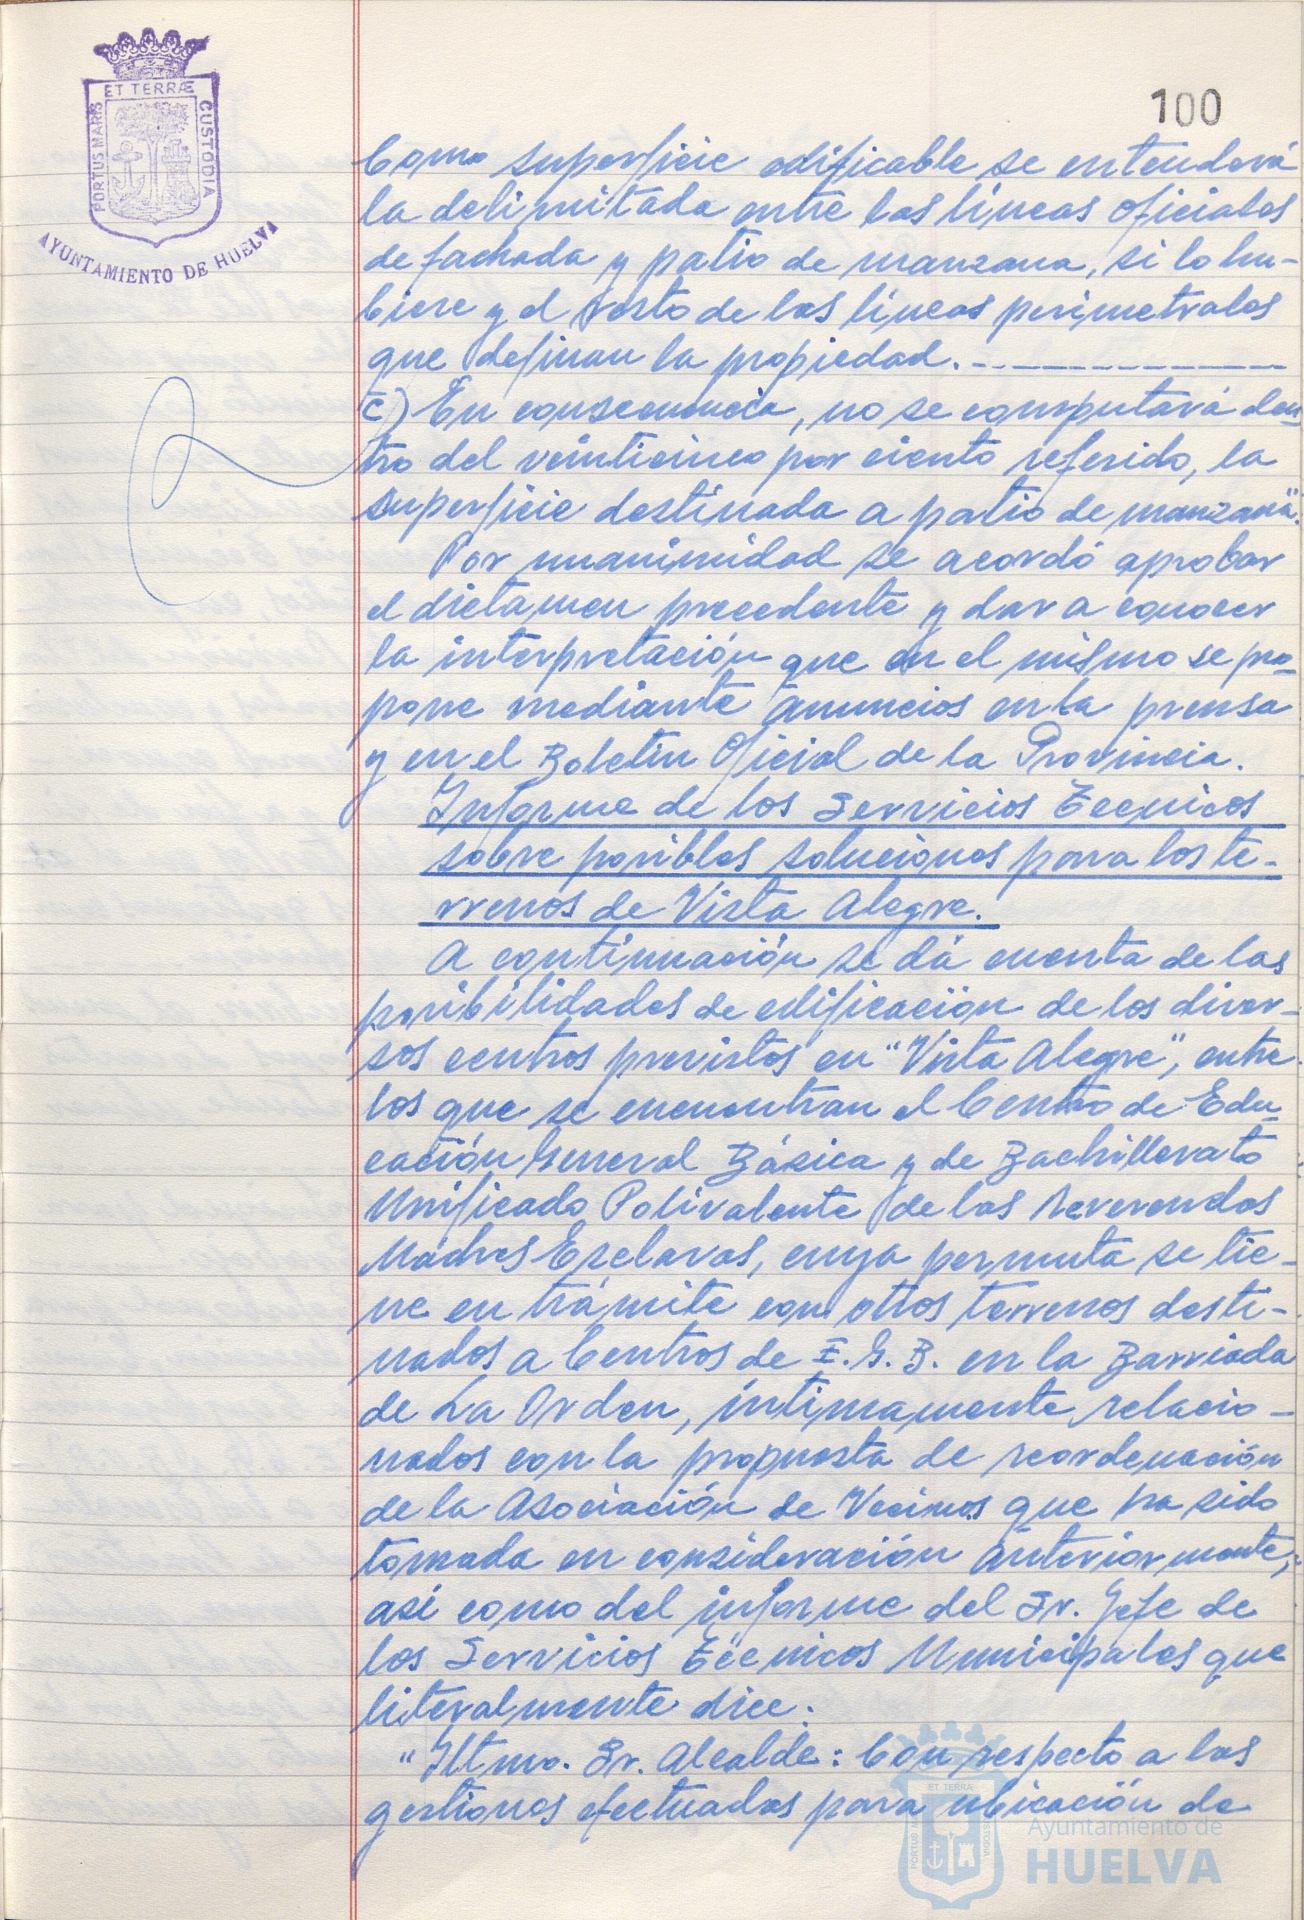 ET TERRÆ
PORTUS MARIS
CUSTODIA
AYUNTAMIENTO DE HUELVA
100
Como superficie edificable se entenderá
la delimitada entre las líneas oficiales
de fachada y patio de manzana, si lo hu-
biere y el resto de las líneas perimetrales
que definan la propiedad.-
c) En consecuencia, no se computará den-
tro del veinticinco por ciento referido, la
superficie destinada a patio de manzana".
Por unanimidad se acordó aprobar
el dictamen precedente y dar a conocer
la interpretación que en el mismo se pro-
pone mediante anuncios en la prensa
y en el Boletín Oficial de la Provincia.
Informe de los Servicios Técnicos
sobre posibles soluciones para los te-
rrenos de Vista Alegre.
A continuación se dá cuenta de las
posibilidades de edificación de los diver-
sos centros previstos en "Vista Alegre", entre
los que se encuentran el Centro de Edu-
cación General Básica y de Bachillerato
Unificado Polivalente de las Reverendas
Madres Esclavas, cuya permuta se tie-
ne en trámite con otros terrenos desti-
nados a Centros de E.G.B. en la Barriada
de La Orden, íntimamente relacio-
nados con la propuesta de reordenación
de la Asociación de Vecinos que ha sido
tomada en consideración anteriormente,
así como del informe del Sr. Jefe de
los Servicios Técnicos Municipales que
literalmente dice:
"Iltmo. Sr. Alcalde: Con respecto a las
gestiones efectuadas para ubicación de
ET TERRÆ
PORTUS MARIS
CUSTODIA
Ayuntamiento de
HUELVA